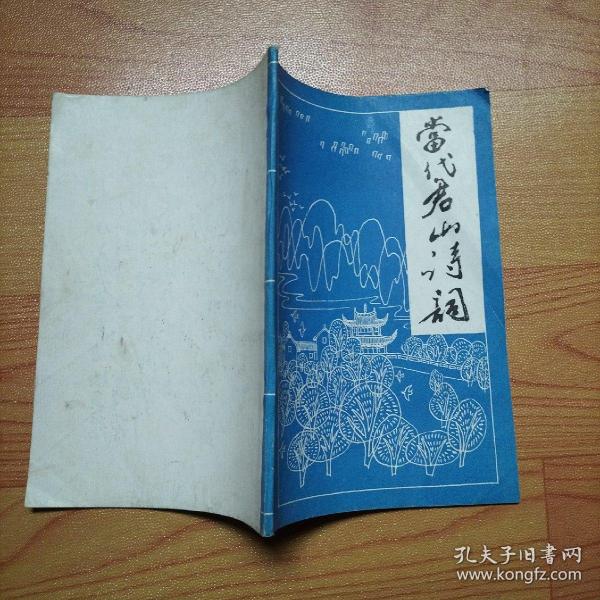 當代君山诗詞
孔夫子旧书网
www.kongfz.com